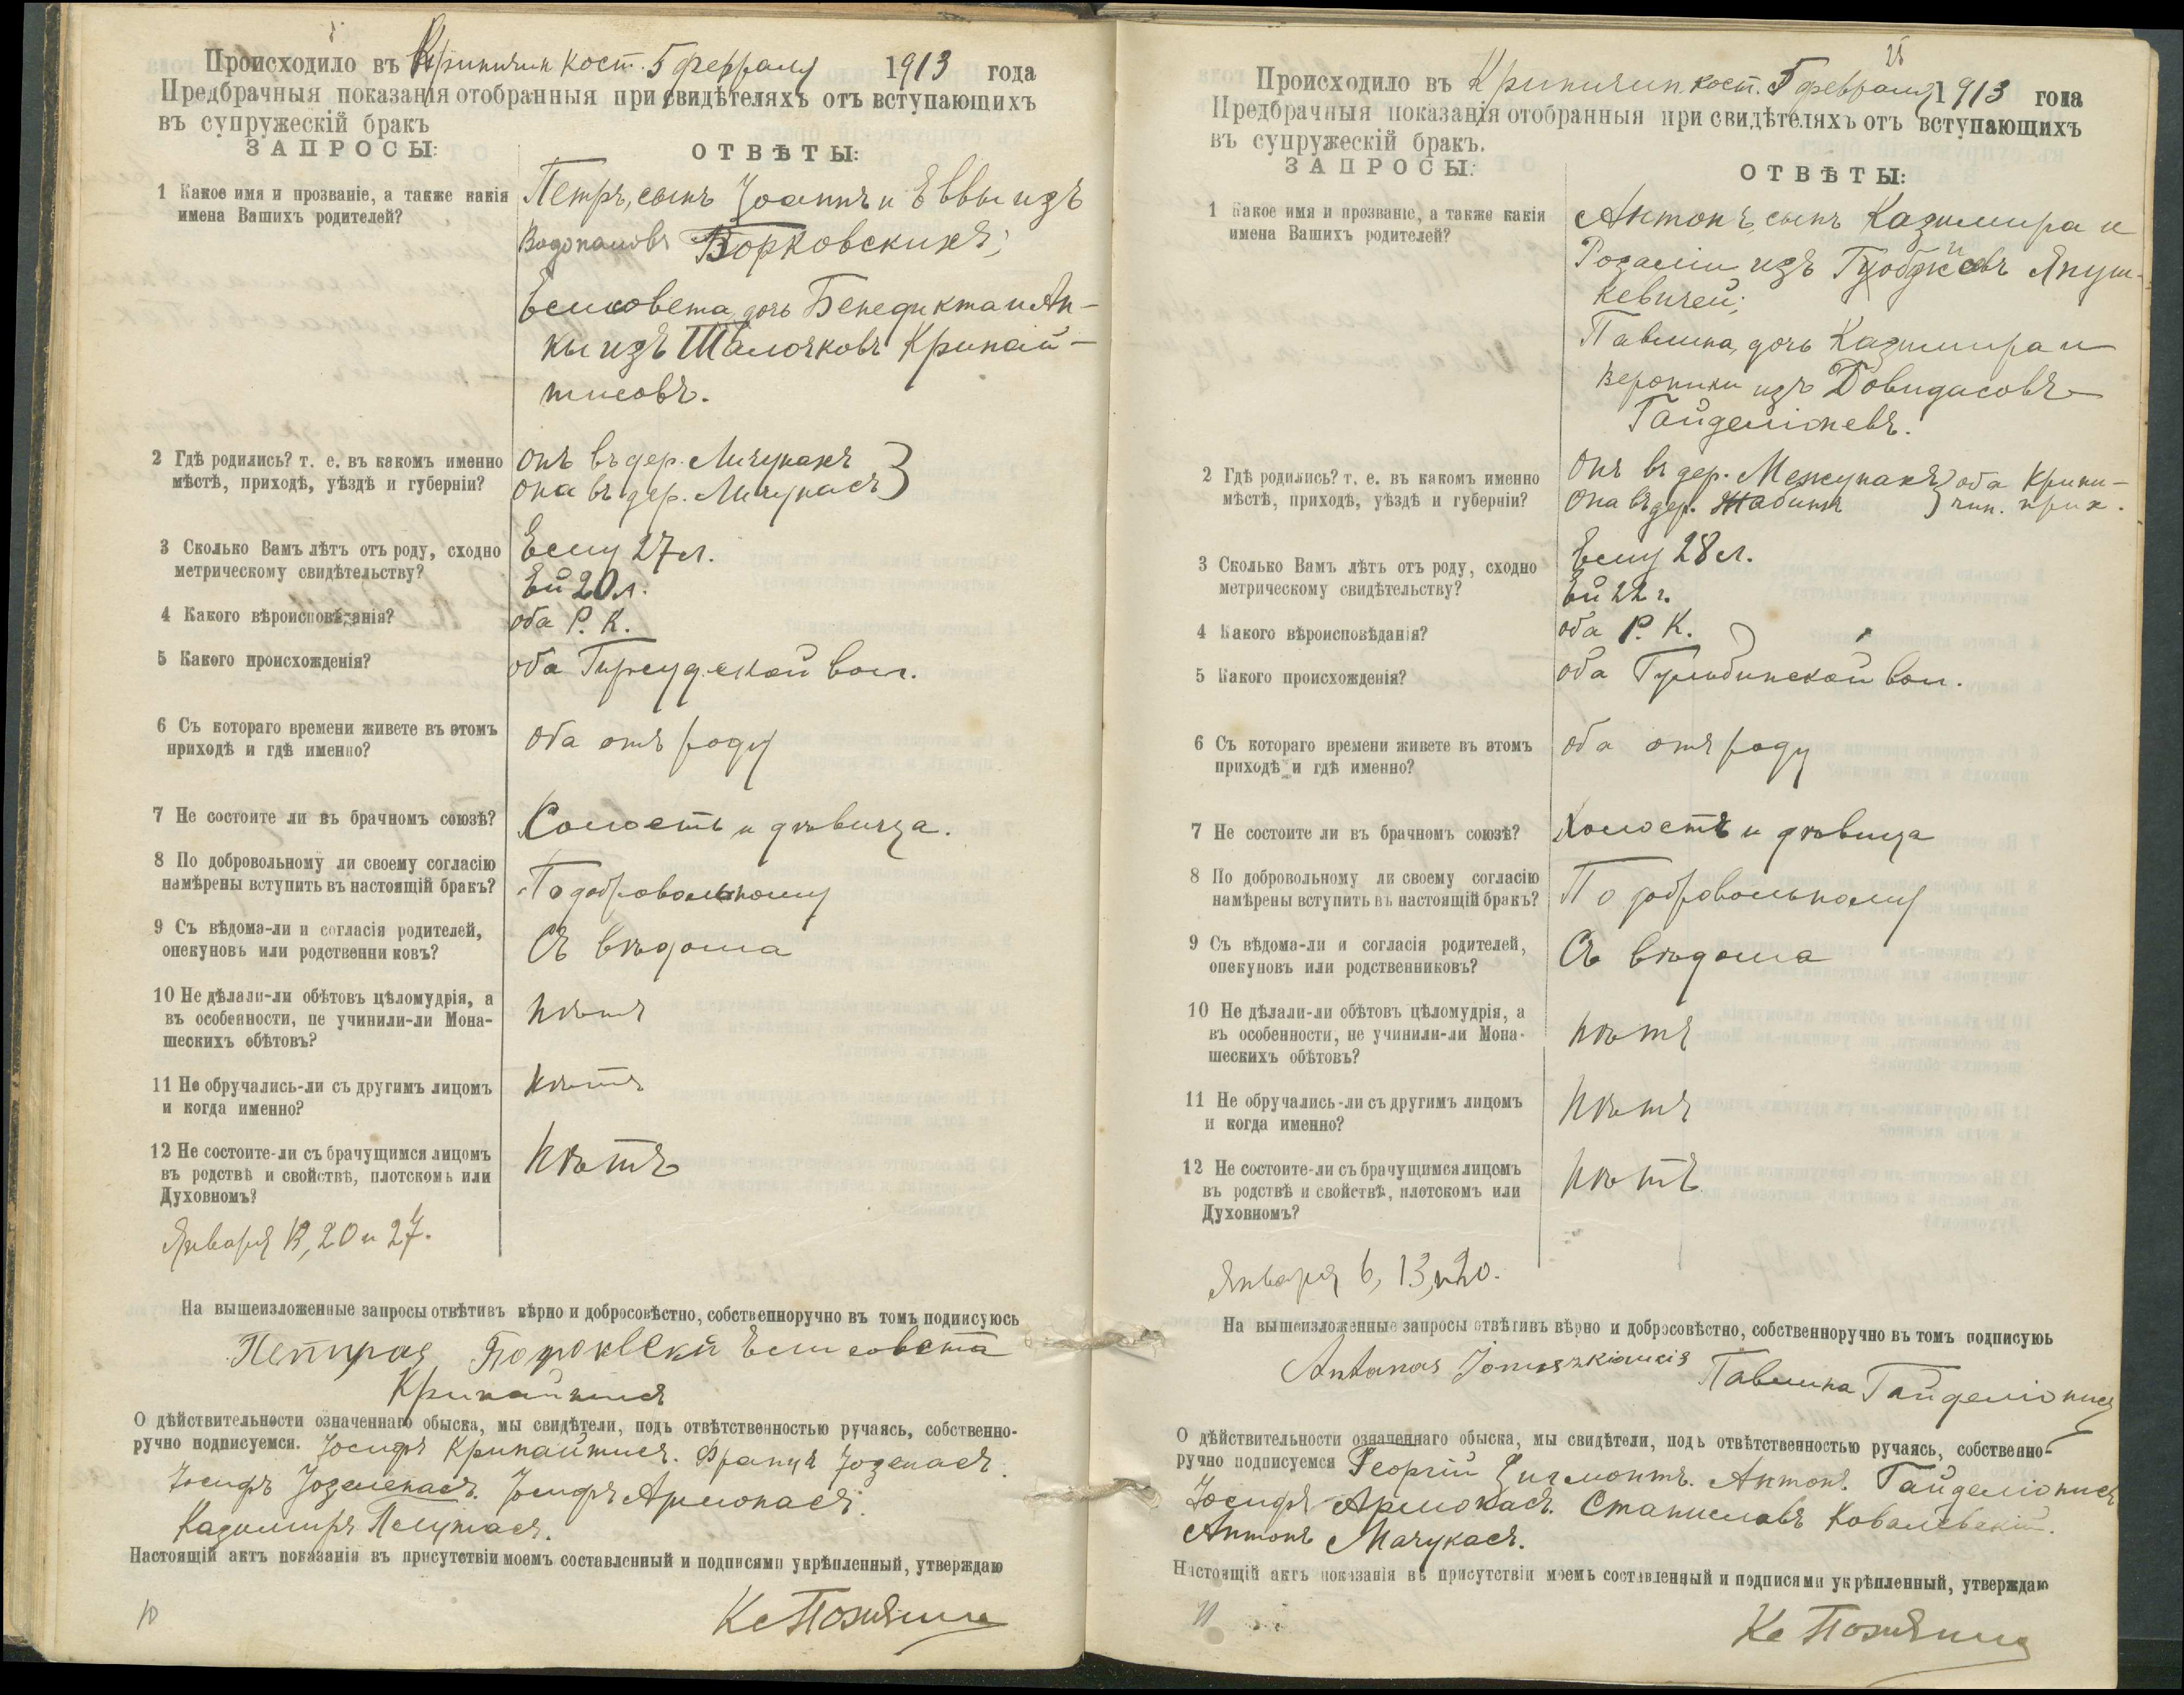 Происходило въ Криничин кост. 5 февраля 1913 года
Предбрачныя показанія отобранныя при свидѣтеляхъ отъ вступающихъ
въ супружескій бракъ
ЗАПРОСЫ:
ОТВѢТЫ:
1 Какое имя и прозваніе, а также какія
имена Вашихъ родителей?
Петръ, сынъ Іоанна и Еввы изъ
Борковскихъ;
Елисовета, дочь Бенедикта и Ан-
ны изъ Шалочковъ Крикай-
тисовъ.
2 Гдѣ родились? т. е. въ какомъ именно
мѣстѣ, приходѣ, уѣздѣ и губерніи?
Онъ въ дер.
Она въ дер.
3 Сколько Вамъ лѣтъ отъ роду, сходно
метрическому свидѣтельству?
Ему 27 л.
Ей 20 л.
4 Какого вѣроисповѣданія?
оба Р. К.
5 Какого происхожденія?
оба Гирсудской вол.
6 Съ котораго времени живете въ этомъ
приходѣ и гдѣ именно?
Оба отъ роду
7 Не состоите ли въ брачномъ союзѣ?
Холостъ и дѣвица.
8 По добровольному ли своему согласію
намѣрены вступить въ настоящій бракъ?
По добровольному
9 Съ вѣдома-ли и согласія родителей,
опекуновъ или родственни ковъ?
Съ вѣдома
10 Не дѣлали-ли обѣтовъ цѣломудрія, а
въ особенности, не учинили-ли Мона-
шескихъ обѣтовъ?
нѣтъ
11 Не обручались-ли съ другимъ лицомъ
и когда именно?
нѣтъ
12 Не состоите-ли съ брачущимся лицомъ
въ родствѣ и свойствѣ, плотскомъ или
Духовномъ?
нѣтъ
Января 13, 20 и 27.
На вышеизложенные запросы отвѣтивъ вѣрно и добросовѣстно, собственноручно въ томъ подписуюсь
Елисовета
О дѣйствительности означеннаго обыска, мы свидѣтели, подъ отвѣтственностью ручаясь, собственно-
ручно подписуемся. Іосифъ Крикайтисъ. Францъ Іозенасъ.
Іосифъ Іосифъ Армонасъ.
Казимиръ
Настоящій актъ показанія въ присутствіи моемъ составленный и подписями укрѣпленный, утверждаю
10
Происходило въ Криничин. кост. 5 февраля 1913 года
Предбрачныя показанія отобранныя при свидѣтеляхъ отъ вступающихъ
въ супружескій бракъ.
ЗАПРОСЫ:
ОТВѢТЫ:
1 Какое имя и прозваніе, а также какія
имена Вашихъ родителей?
Антонъ, сынъ Казимира и
Розаліи изъ Януш-
кевичей;
Павлина, дочь Казимира и
Вероники изъ Довидасовъ
Гайделіоневъ.
2 Гдѣ родились? т. е. въ какомъ именно
мѣстѣ, приходѣ, уѣздѣ и губерніи?
Онъ въ дер. оба Крини-
Она въ дер. чин. прих.
3 Сколько Вамъ лѣтъ отъ роду, сходно
метрическому свидѣтельству?
Ему 28 л.
Ей 22 г.
4 Какого вѣроисповѣданія?
оба Р. К.
5 Какого происхожденія?
оба Гульбинской вол.
6 Съ котораго времени живете въ этомъ
приходѣ и гдѣ именно?
оба отъ роду
7 Не состоите ли въ брачномъ союзѣ?
Холостъ и дѣвица
8 По добровольному ли своему согласію
намѣрены вступить въ настоящій бракъ?
По добровольному
9 Съ вѣдома-ли и согласія родителей,
опекуновъ или родственниковъ?
Съ вѣдома
10 Не дѣлали-ли обѣтовъ цѣломудрія, а
въ особенности, не учинили-ли Мона-
шескихъ обѣтовъ?
нѣтъ
11 Не обручались-ли съ другимъ лицомъ
и когда именно?
нѣтъ
12 Не состоите-ли съ брачущимся лицомъ
въ родствѣ и свойствѣ, плотскомъ или
Духовномъ?
нѣтъ
Января 6, 13, и 20.
На вышеизложенные запросы отвѣтивъ вѣрно и добросовѣстно, собственноручно въ томъ подписуюь
Antanas Павлина Гайделіонисъ
О дѣйствительности означеннаго обыска, мы свидѣтели, подъ отвѣтственностью ручаясь, собственно-
ручно подписуемся Георгій Антонъ Гайделіонисъ
Іосифъ Армонасъ. Станиславъ Ковалевскій.
Антонъ Мачукасъ.
Настоящій актъ показанія въ присутствіи моемъ составленный и подписями укрѣпленный, утверждаю
11